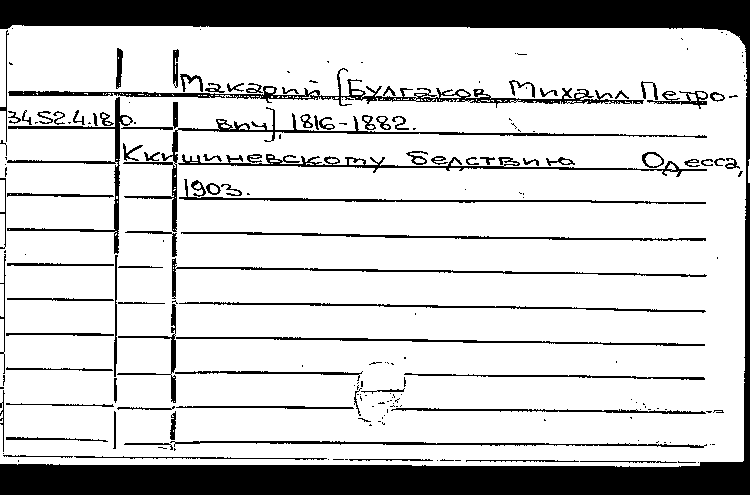 Макарий [Булгаков, Михаил Петро-
34.52.4.180. вич], 1816-1882.
Ккишиневскому бедствию Одесса,
1903.